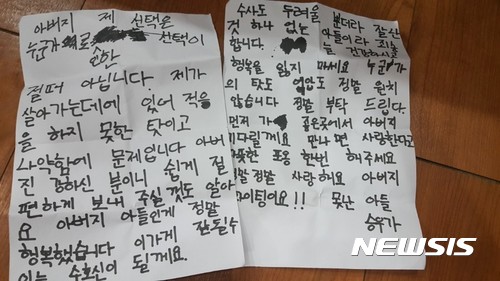 아버지 제 선택은
누군가 로 선택이
순한
절떠 아닙니다. 제가
살아가는데에 있어 적응
을 하지 못한 탓이고
나약함에 문제입니다 아버
진 강하신 분이니 쉽게 절
편하게 보내 주실 껏도 알아
요 아버지 아들인게 정말
행복했습니다 이가게 잔될수
있는 수호신이 될게요.
수사도 두려울
것 하나 없는
합니다.
행복을 잃지 마세요 누군가
의 탓도 정말 원치
않습니다 정말 부탁 드립니다.
먼저 가 좋은곳에서 아버지
기다릴께요 만나면 사랑한다고
따뜻한 포옹 한번 해주세요
정말 정말 사랑해요 아버지
화이팅이요!! 못난 아들
승욱가
뽄더라 잘산
아들이라 죄송
늘 건강하시고
NEWSIS